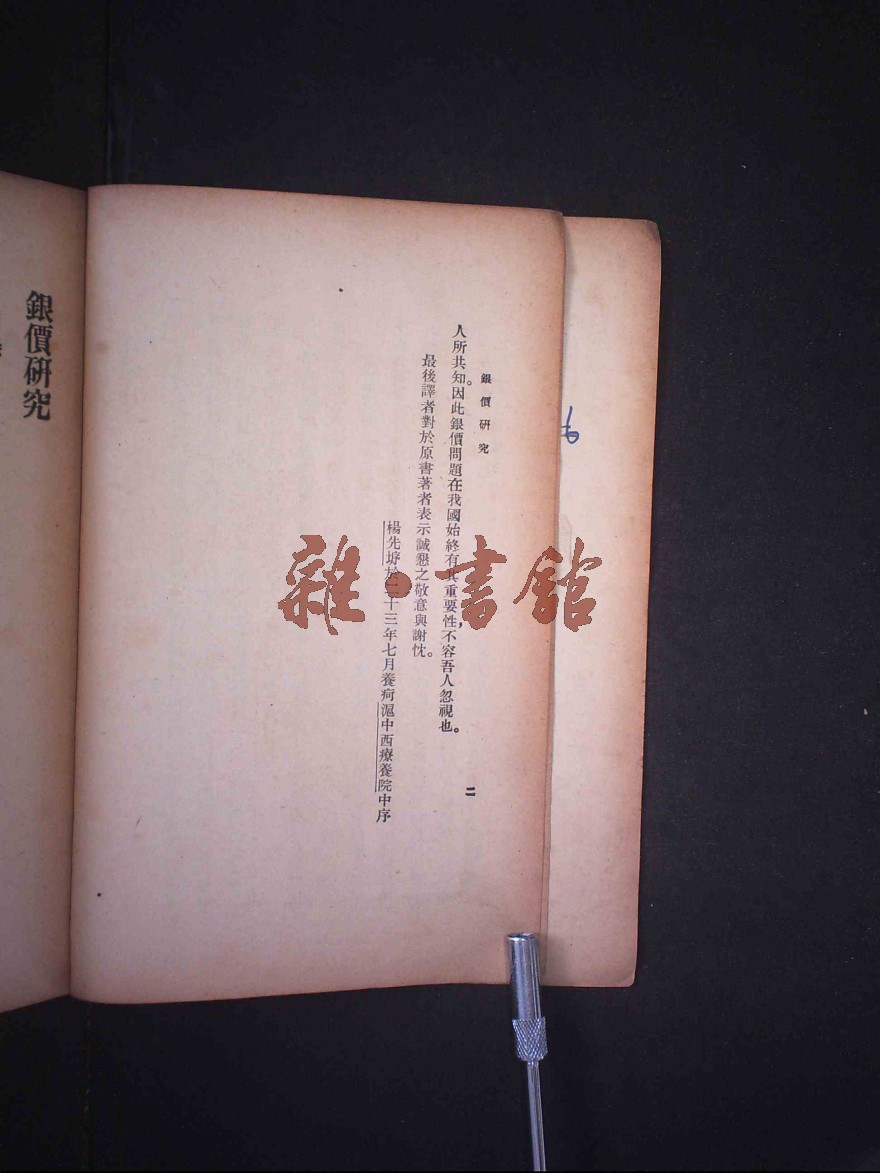 銀價研究
人所共知。因此銀價問題在我國始終有其重要性，不容吾人忽視也。
最後譯者對於原書著者表示誠懇之敬意與謝忱。
楊先垿於二十三年七月養疴滬中西療養院中序
二
銀價研究
雜·書館